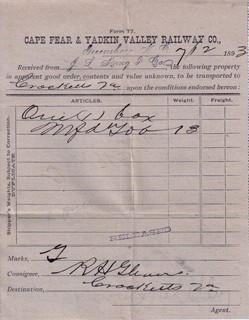 Form 77.
CAPE FEAR & YADKIN VALLEY RAILWAY CO.,
Greensboro N.C. 7/12 1893
Received from J. L. King & Co. the following property
in apparent good order, contents and value unknown, to be transported to
Crocketts Va upon the conditions endorsed hereon:
ARTICLES. Weight. Freight.
One (1) box
Mfd Tob 13
Shipper's Weights, Subject to Correction.
DUPLICATE.
RELEASED
Marks,
Consignee, R H
Destination, Crocketts Va
Agent.